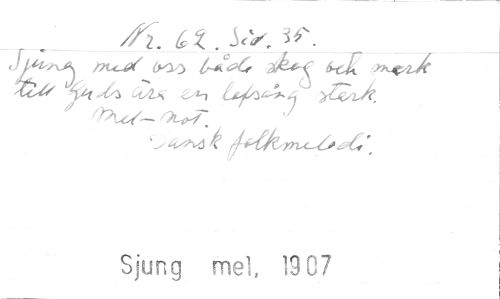 Nr. 62. Sid. 35.
Sjung med oss både skog och mark
till Guds ära en lofsång stark.
Mel-not.
Dansk folkmelodi.
Sjung mel, 1907